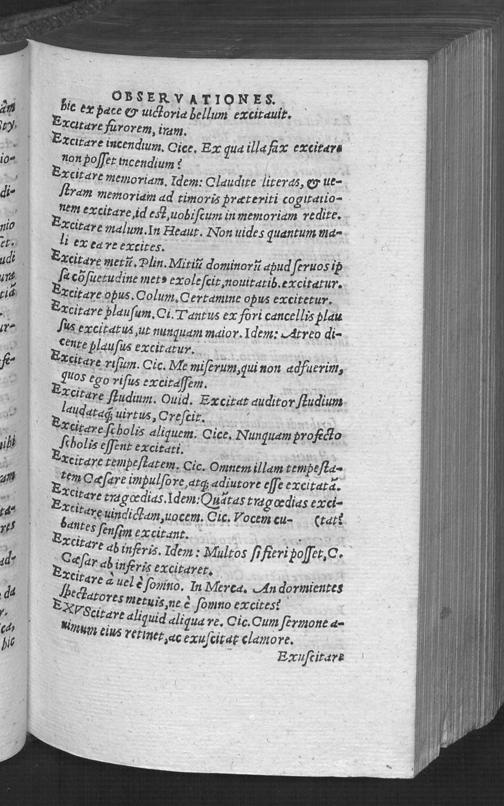 OBSERVATIONES.
hic ex pace & uictoria bellum excitauit.
Excitare furorem, iram.
Excitare incendium. Cice. Ex qua illa fax excitare
non posset incendium?
Excitare memoriam. Idem: Claudite literas, & ue-
stram memoriam ad timoris præteriti cogitatio-
nem excitare, id est, uobiscum in memoriam redite.
Excitare malum. In Heaut. Non uides quantum ma-
li ex ea re excites.
Excitare metũ. Plin. Mitiũ dominorũ apud seruos ip
sa cõsuetudine metꝰ exolescit, nouitatib. excitatur.
Excitare opus. Colum. Certamine opus excitetur.
Excitare plausum. Ci. Tantus ex fori cancellis plau
sus excitatus, ut nunquam maior. Idem: Atreo di-
cente plausus excitatur.
Excitare risum. Cic. Me miserum, qui non adfuerim,
quos ego risus excitassem.
Excitare studium. Ouid. Excitat auditor studium
laudataq; uirtus, Crescit.
Excitare scholis aliquem. Cice. Nunquam profecto
scholis essent excitati.
Excitare tempestatem. Cic. Omnem illam tempesta-
tem Cæsare impulsore, atq; adiutore esse excitatã.
Excitare tragœdias. Idem: Quãtas tragœdias exci-
Excitare uindictam, uocem. Cic. Vocem cu- (tat?
bantes sensim excitant.
Excitare ab inferis. Idem: Multos si fieri posset, C.
Cæsar ab inferis excitaret.
Excitare à uel è somno. In Merca. An dormientes
spectatores metuis, ne è somno excites?
EXVScitare aliquid aliqua re. Cic. Cum sermone a-
nimum eius retinet, ac exuscitat clamore.
Exuscitare